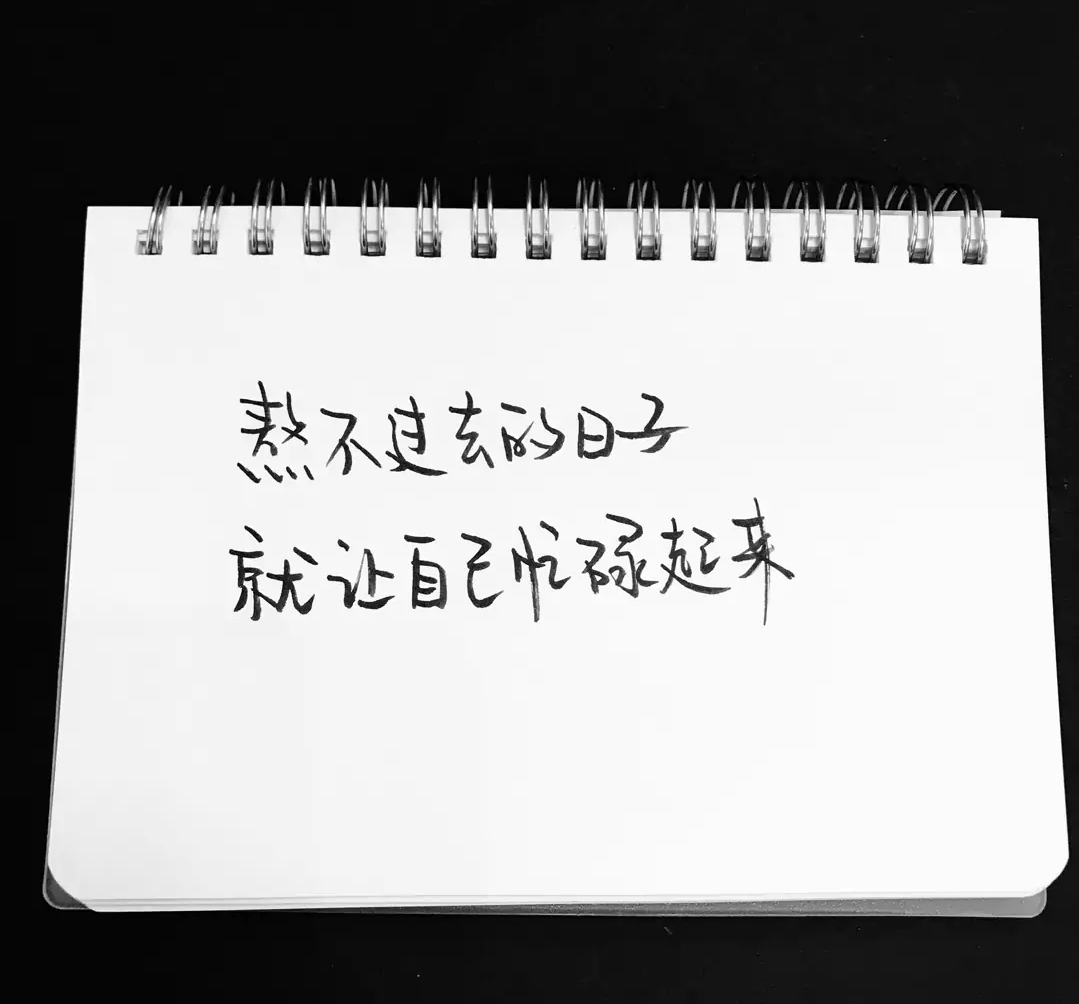 熬不过去的日子
就让自己忙碌起来